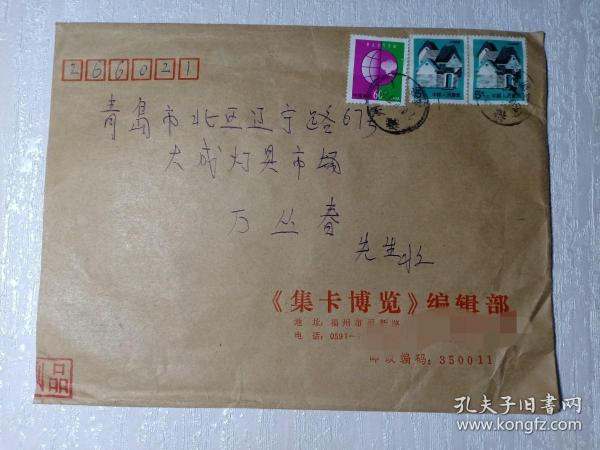 266021
青岛市北区辽宁路67号
大成灯具市场
万丛春
先生收
《集卡博览》编辑部
地 址:福州市
电 话:0591-
邮政编码:350011
品
60
中国人民邮政
中国人民邮政
孔夫子旧书网
www.kongfz.com